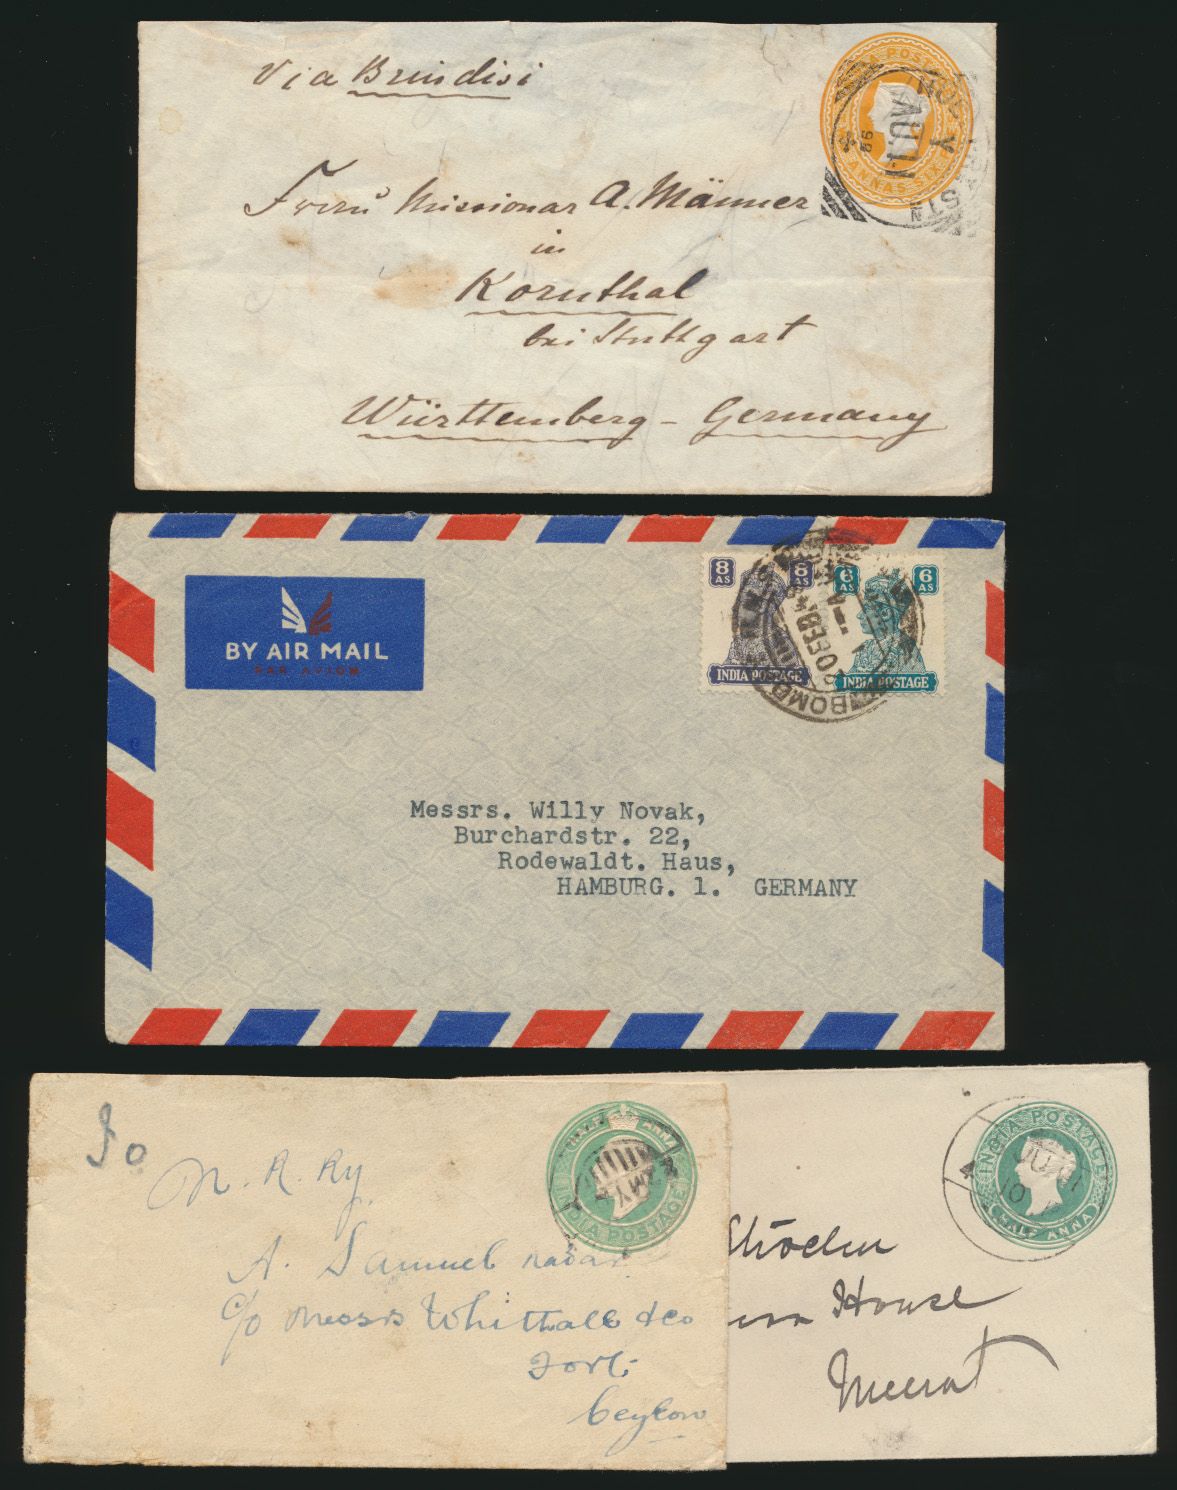 Via Brindisi
POST
ANNAS SIX
AU.11
86
Missionar A. Männer
in
Kornthal
bei Stuttgart
Württemberg - Germany
BY AIR MAIL
PAR AVION
8 AS 8 AS
INDIA POSTAGE
6 AS 6 AS
INDIA POSTAGE
R.M.S.
FEB
BOMB
Messrs. Willy Novak,
Burchardstr. 22,
Rodewaldt. Haus,
HAMBURG. 1. GERMANY
To
N. R. Ry
A. Samuel nadar
c/o Messrs Whittall & Co
Fort
Ceylon
ANNA
INDIA POSTAGE
MY
INDIA POSTAGE
HALF ANNA
4
JU
10
House
Meerut